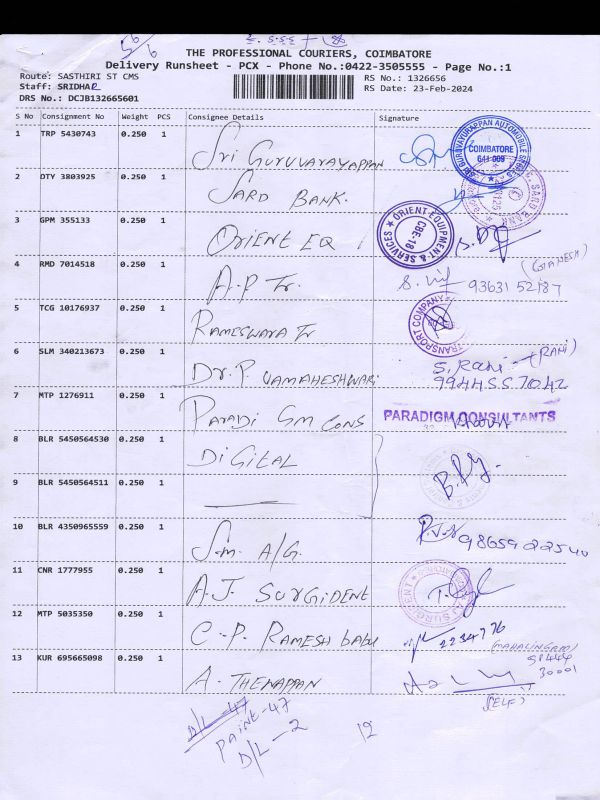 THE PROFESSIONAL COURIERS, COIMBATORE
Delivery Runsheet - PCX - Phone No.:0422-3505555 - Page No.:1
Route: SASTHIRI ST CMS
Staff: SRIDHAR
DRS No.: DCJB132665601
RS No.: 1326656
RS Date: 23-Feb-2024
S No Consignment No Weight PCS Consignee Details Signature
1 TRP 5430743 0.250 1 Sri Guruvarayappan
COIMBATORE 641 009
2 DTY 3803925 0.250 1 SARD BANK.
3 GPM 355133 0.250 1 ORIENT EQ
ORIENT EQUIPMENT & SERVICES CBE-18
(GANESH)
4 RMD 7014518 0.250 1 A.P Tr.
93631 52187
5 TCG 10176937 0.250 1 RAMESWARA Tr
TRANSPORT COMPANY
6 SLM 340213673 0.250 1 Dr.P. UAMAHESHWARI
S. Rani (RANI)
99445 57042
7 MTP 1276911 0.250 1 PARADIGM CONS
PARADIGM CONSULTANTS
8 BLR 5450564530 0.250 1 DIGITAL
9 BLR 5450564511 0.250 1
10 BLR 4350965559 0.250 1 S.M. A/G.
98659 22540
11 CNR 1777955 0.250 1 A.J. SURGIDENT
12 MTP 5035350 0.250 1 C.P. RAMESH babu
2234776
(MAHALINGAM)
13 KUR 695665098 0.250 1 A. THENAPPAN
30001
(SELF)
D/L-47
PAINE-47
D/L-2
12